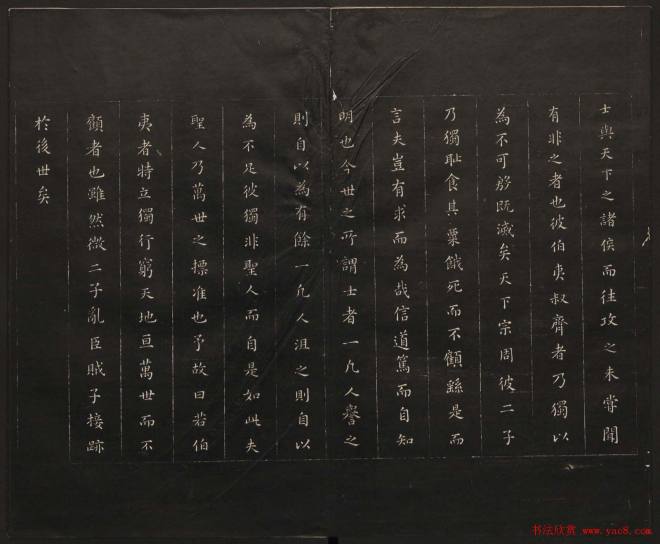 士與天下之諸侯而往攻之未嘗聞
有非之者也彼伯夷叔齊者乃獨以
為不可殷既滅矣天下宗周彼二子
乃獨恥食其粟餓死而不顧繇是而
言夫豈有求而為哉信道篤而自知
明也今世之所謂士者一凡人譽之
則自以為有餘一凡人沮之則自以
為不足彼獨非聖人而自是如此夫
聖人乃萬世之標准也予故曰若伯
夷者特立獨行窮天地亘萬世而不
顧者也雖然微二子亂臣賊子接跡
於後世矣
书法欣赏 www.yac8.com